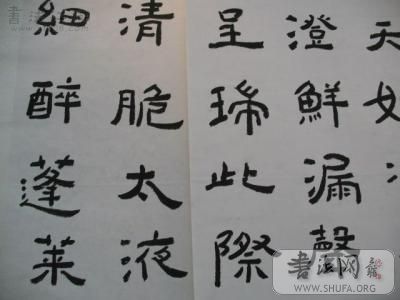 天
澄鮮漏聲
呈瑞此際
清脆太液
細醉蓬萊
書法网
WWW.SHUFA.ORG